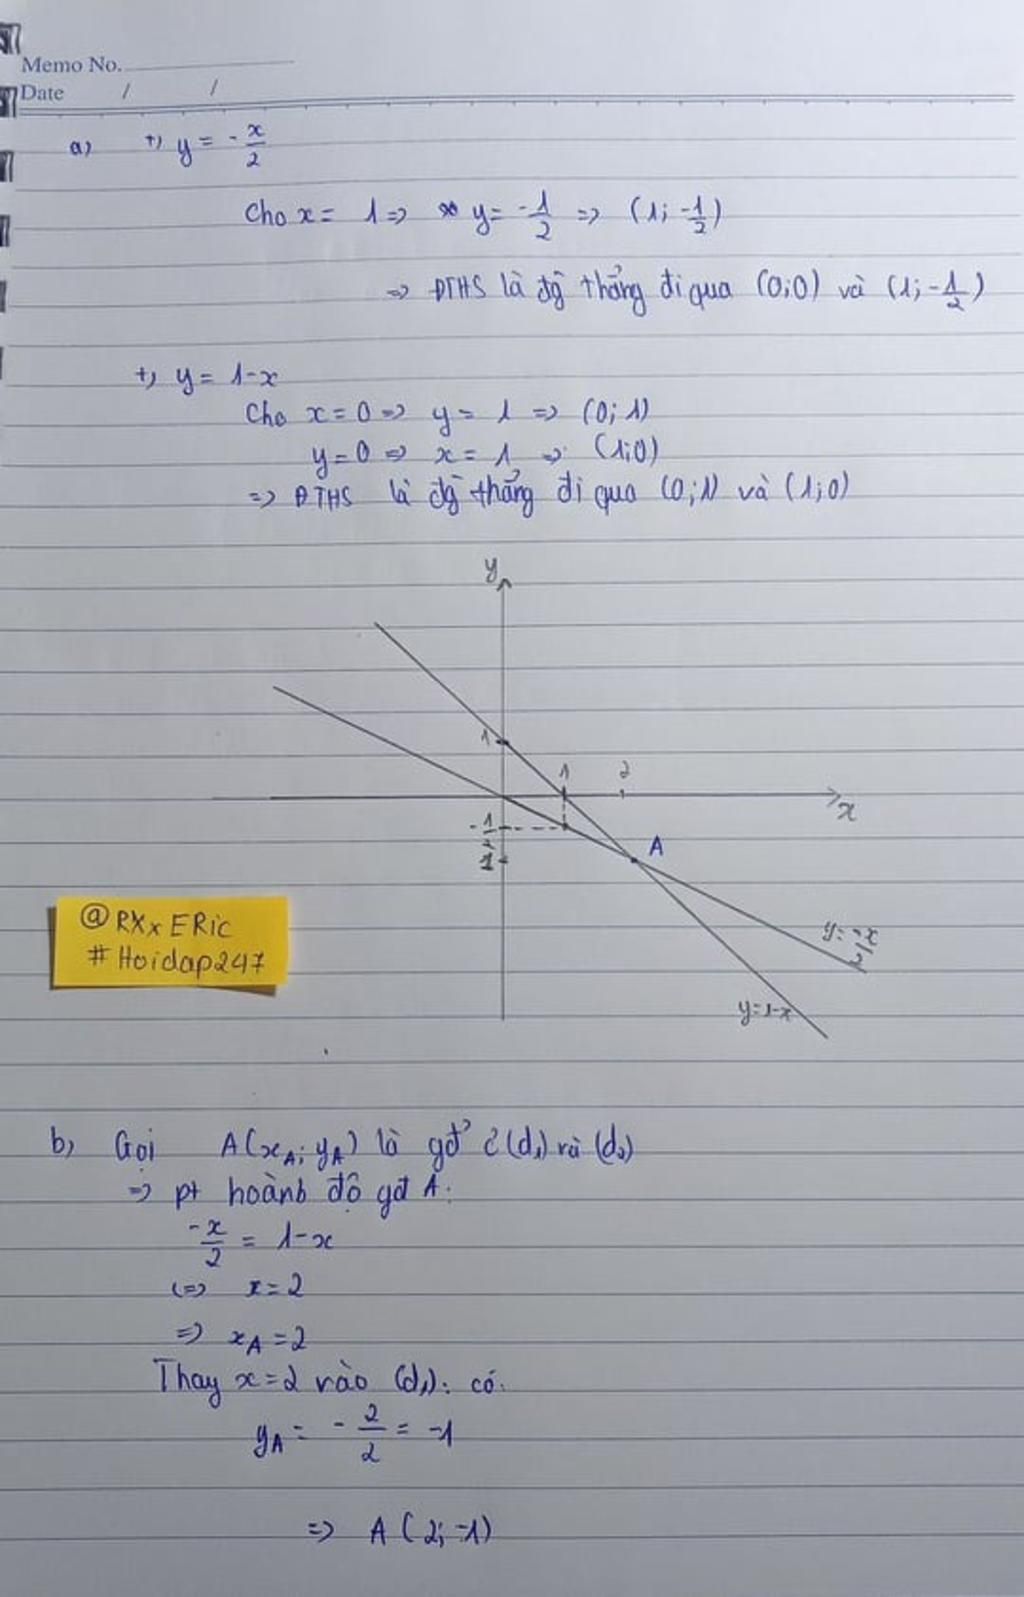 Memo No.
Date / /
a) +) y = -x/2
Cho x = 1 => y = -1/2 => (1; -1/2)
=> ĐTHS là đg thẳng đi qua (0;0) và (1; -1/2)
+) y = 1-x
Cho x = 0 => y = 1 => (0; 1)
y = 0 => x = 1 => (1;0)
=> ĐTHS là đg thẳng đi qua (0;1) và (1;0)
y
1
1 2
x
-1/2
A
@RXxERic
#Hoidap247
y = -x/2
y=1-x
b) Gọi A(xA; yA) là gđ (d1) và (d2)
=> pt hoành độ gđ A:
-x/2 = 1-x
<=> x = 2
=> xA = 2
Thay x=2 vào (d1): có:
yA = -2/2 = -1
=> A (2; -1)